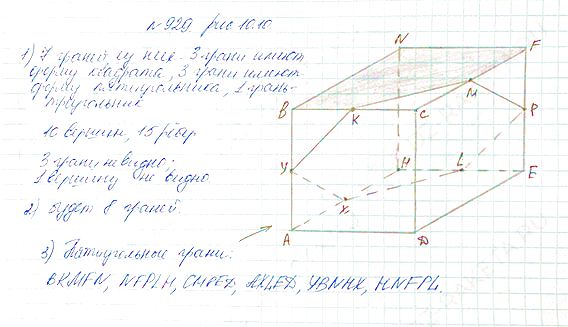 № 929 рис 10.10.
1) 7 граней из них 3 грани имеют
форму квадрата, 3 грани имеют
форму пятиугольника, 1 грань-
треугольник
10 вершин, 15 рёбер
3 грани не видно;
1 вершину не видно
2) будет 8 граней.
3) Пятиугольные грани:
BKMFN, NFPLH, CMPED, AXLED, YBNHX, HNFPL.
N
F
M
B
K
C
P
У
H
L
E
X
A
D